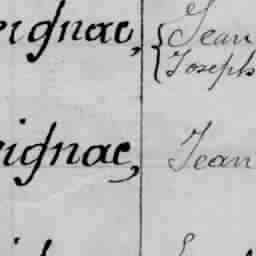 eignac, { Jean
Joseph
eignac, Jean